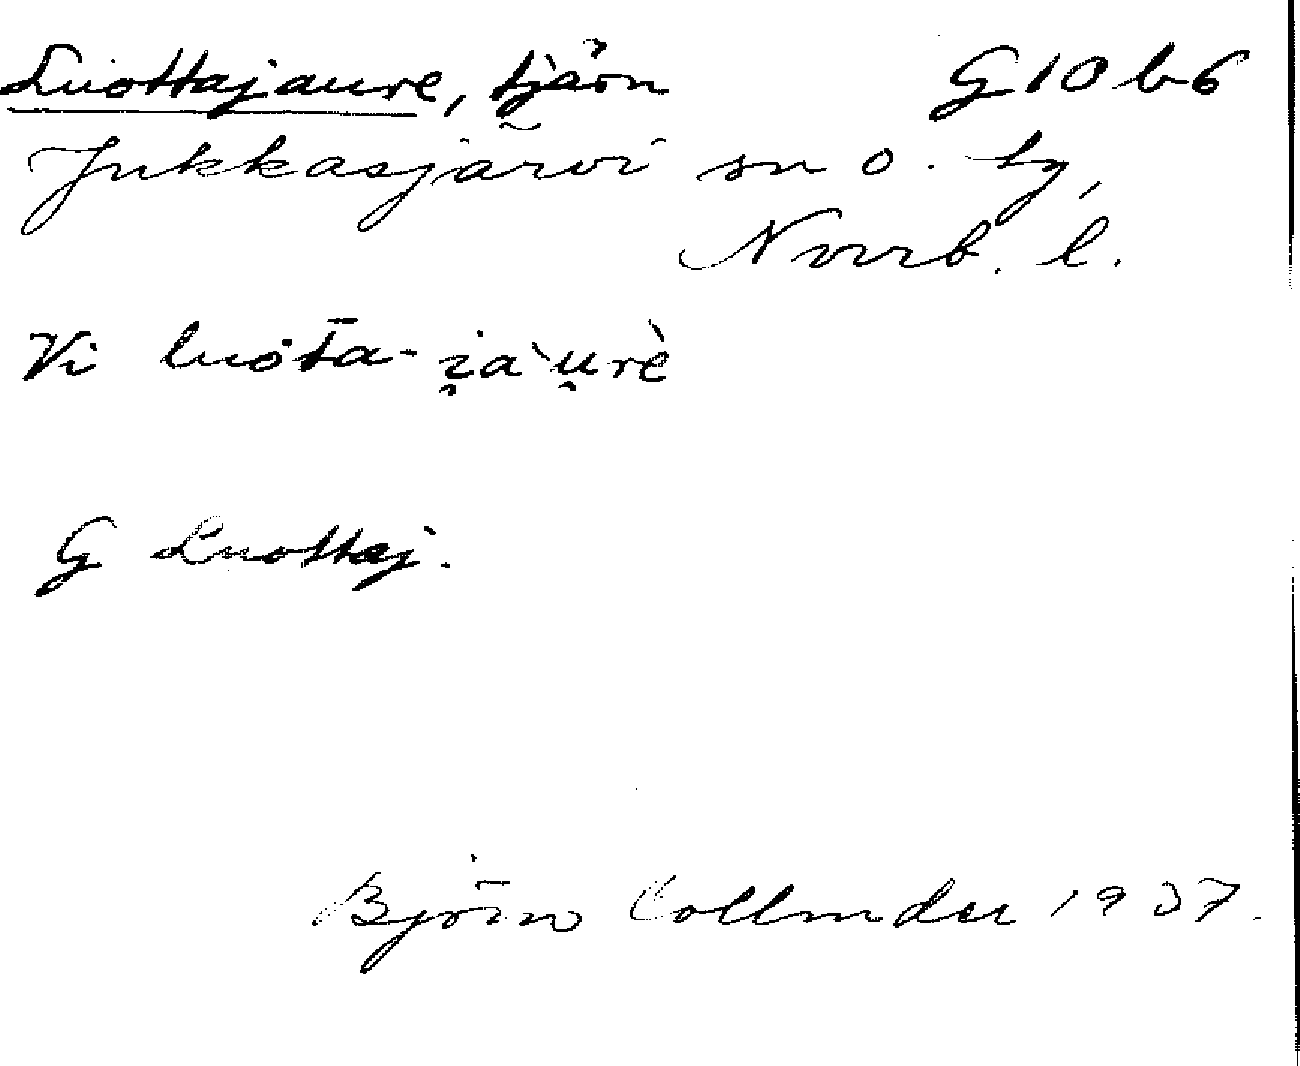 Luottajaure, tjärn G 10 b 6
Jukkasjärvi sn o. tg,
Norrb. l.
Vi luot̄a-i̯àu̯rè
G Luottaj.
Björn Collinder 1937.